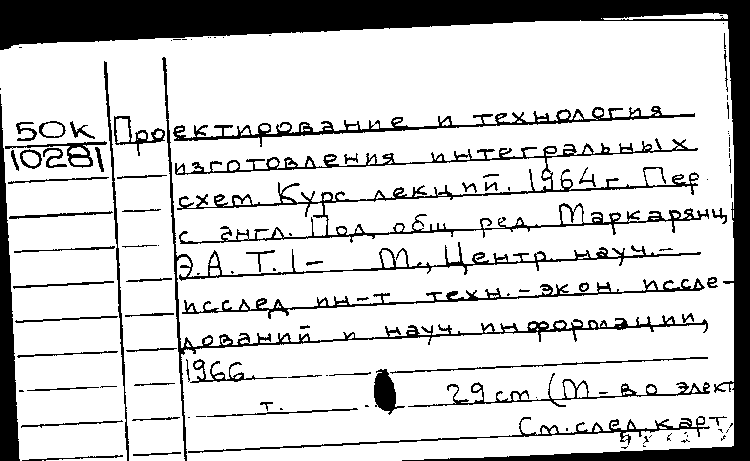 50к Проектирование и технология
10281 изготовления интегральных
схем. Курс лекций. 1964 г. Пер
с англ. Под общ ред. Маркарянц
Э.А. Т.1- М., Центр. науч.-
исслед ин-т техн.-экон. иссле-
дований и науч. информации,
1966.
т. 29 см (М-во элект
См. след. карт